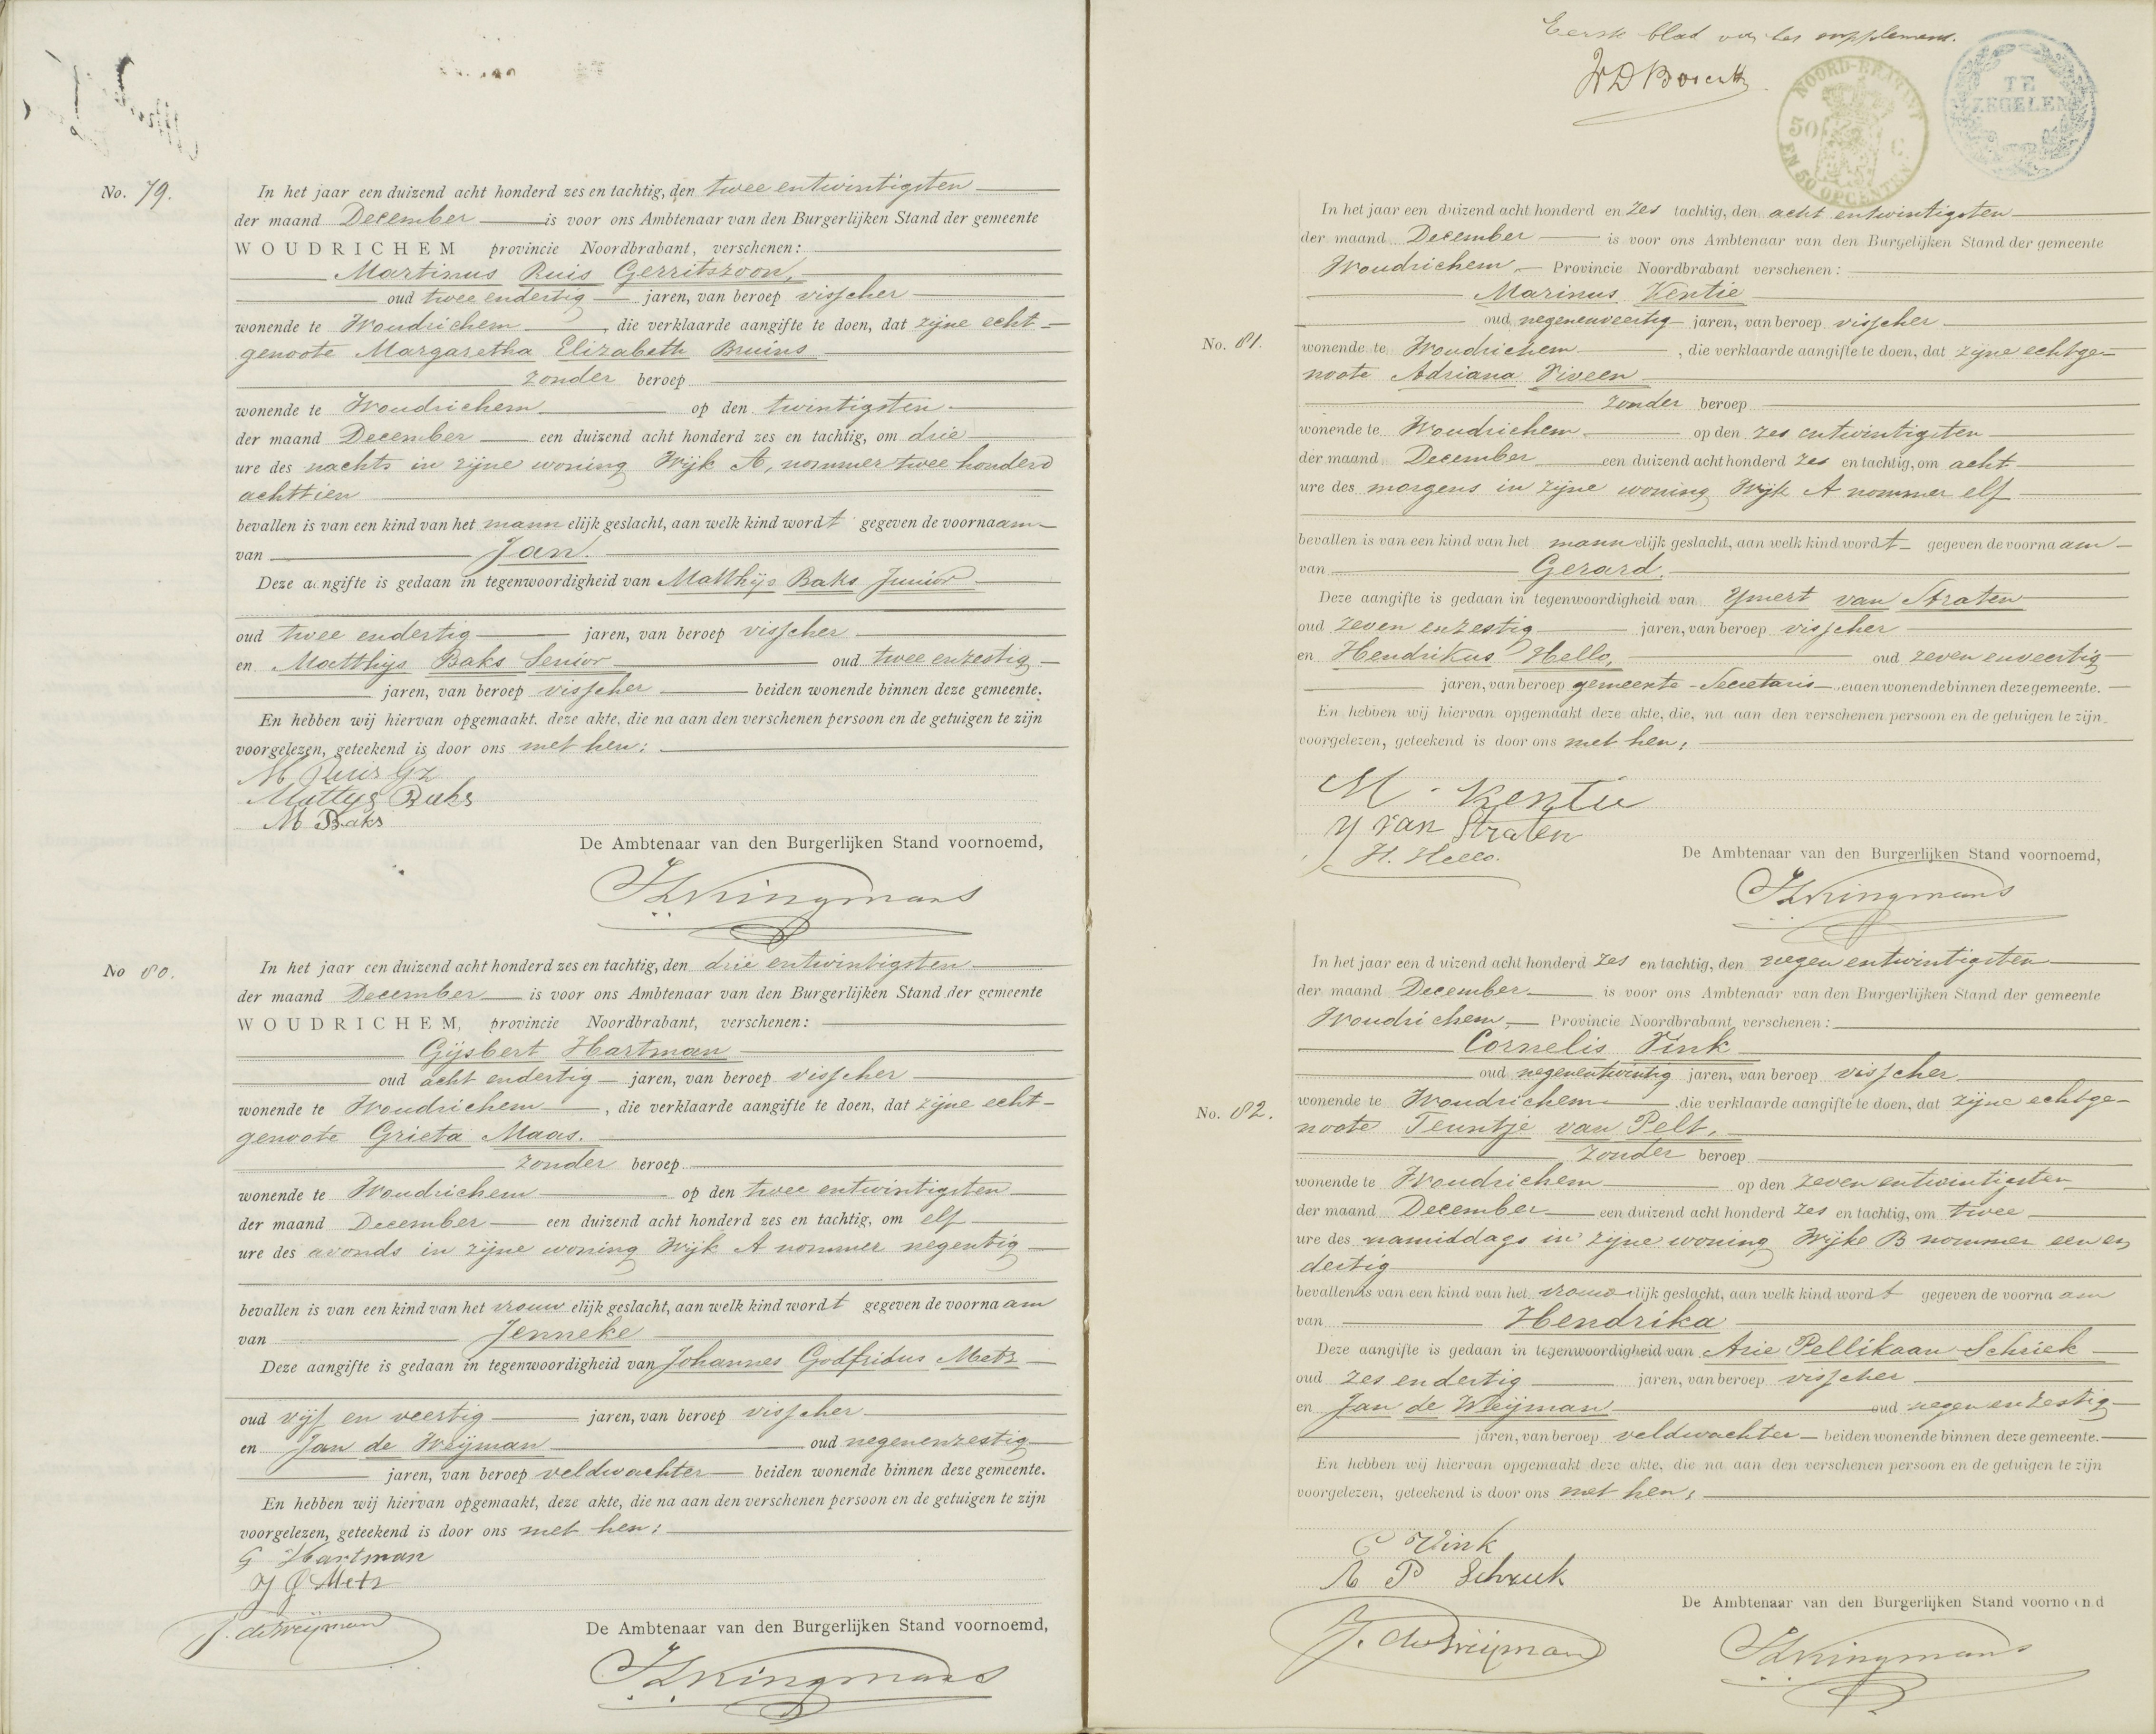 No. 79.
In het jaar een duizend acht honderd zes en tachtig, den twee entwintigsten
der maand December is voor ons Ambtenaar van den Burgerlijken Stand der gemeente
WOUDRICHEM provincie Noordbrabant, verschenen:
Martinus Ruis Gerritszoon,
oud twee endertig jaren, van beroep visscher
wonende te Woudrichem, die verklaarde aangifte te doen, dat zijne echt-
genoote Margaretha Elizabeth Bruins
zonder beroep
wonende te Woudrichem op den twintigsten
der maand December een duizend acht honderd zes en tachtig, om drie
ure des nachts in zijne woning Wijk A, nommer twee honderd
achttien
bevallen is van een kind van het mannelijk geslacht, aan welk kind wordt gegeven de voornaam
van Jan.
Deze aangifte is gedaan in tegenwoordigheid van Matthijs Baks Junior
oud twee endertig jaren, van beroep visscher
en Matthijs Baks Senior oud twee enzestig
jaren, van beroep visscher beiden wonende binnen deze gemeente.
En hebben wij hiervan opgemaakt. deze akte, die na aan den verschenen persoon en de getuigen te zijn
voorgelezen, geteekend is door ons met hen:
M Ruis Gz
Mattys Baks
M Baks
De Ambtenaar van den Burgerlijken Stand voornoemd,
Kingmans
No 80.
In het jaar een duizend acht honderd zes en tachtig, den drie entwintigsten
der maand December is voor ons Ambtenaar van den Burgerlijken Stand der gemeente
WOUDRICHEM, provincie Noordbrabant, verschenen:
Gijsbert Hartman
oud acht endertig jaren, van beroep visscher
wonende te Woudrichem, die verklaarde aangifte te doen, dat zijne echt-
genoote Grieta Maas.
zonder beroep
wonende te Woudrichem op den twee entwintigsten
der maand December een duizend acht honderd zes en tachtig, om elf
ure des avonds in zijne woning Wijk A nommer negentig
bevallen is van een kind van het vrouwelijk geslacht, aan welk kind wordt gegeven de voornaam
van Jenneke
Deze aangifte is gedaan in tegenwoordigheid van Johannes Godfridus Metz
oud vijf en veertig jaren, van beroep visscher
en Jan de Weijman oud negenenzestig
jaren, van beroep veldwachter beiden wonende binnen deze gemeente.
En hebben wij hiervan opgemaakt, deze akte, die na aan den verschenen persoon en de getuigen te zijn
voorgelezen, geteekend is door ons met hen:
G Hartman
J G Metz
J. de Weijman
De Ambtenaar van den Burgerlijken Stand voornoemd,
Kingmans
Eerste blad van het supplement.
NOORD-BRABANT
50 C.
EN 50 OPCENTEN
TE
ZEGELEN
In het jaar een duizend acht honderd en zes tachtig, den acht entwintigsten
der maand December is voor ons Ambtenaar van den Burgelijken Stand der gemeente
Woudrichem, Provincie Noordbrabant verschenen:
Marinus Kentie
oud negenenveertig jaren, van beroep visscher
No. 81.
wonende te Woudrichem, die verklaarde aangifte te doen, dat zijne echtge-
noote Adriana Viveen
zonder beroep
wonende te Woudrichem op den zes entwintigsten
der maand December een duizend acht honderd zes en tachtig, om acht
ure des morgens in zijne woning Wijk A nommer elf
bevallen is van een kind van het mannelijk geslacht, aan welk kind wordt gegeven de voornaam
van Gerard.
Deze aangifte is gedaan in tegenwoordigheid van Ymert van Straten
oud zeven enzestig jaren, van beroep visscher
en Hendrikus Hello, oud zeven enveertig
jaren, van beroep gemeente-Secretaris beiden wonende binnen deze gemeente.
En hebben wij hiervan opgemaakt deze akte, die, na aan den verschenen persoon en de getuigen te zijn
voorgelezen, geteekend is door ons met hen,
M. Kentie
Y van Straten
H. Hello.
De Ambtenaar van den Burgerlijken Stand voornoemd,
Kingmans
In het jaar een duizend acht honderd zes en tachtig, den negen entwintigsten
der maand December is voor ons Ambtenaar van den Burgerlijken Stand der gemeente
Woudrichem, Provincie Noordbrabant verschenen:
Cornelis Vink
oud negenentwintig jaren, van beroep visscher
No. 82.
wonende te Woudrichem, die verklaarde aangifte te doen, dat zijne echtge-
noote Teuntje van Pelt,
zonder beroep
wonende te Woudrichem op den zeven entwintigsten
der maand December een duizend acht honderd zes en tachtig, om twee
ure des namiddags in zijne woning Wijke B nommer een en
dertig
bevallen is van een kind van het vrouwelijk geslacht, aan welk kind wordt gegeven de voornaam
van Hendrika
Deze aangifte is gedaan in tegenwoordigheid van Arie Pellikaan Schriek
oud zes endertig jaren, van beroep visscher
en Jan de Weijman oud negen enzestig
jaren, van beroep veldwachter beiden wonende binnen deze gemeente.
En hebben wij hiervan opgemaakt deze akte, die na aan den verschenen persoon en de getuigen te zijn
voorgelezen, geteekend is door ons met hen,
C Vink
A P Schriek
J. de Weijman
De Ambtenaar van den Burgerlijken Stand voornoemd
Kingmans